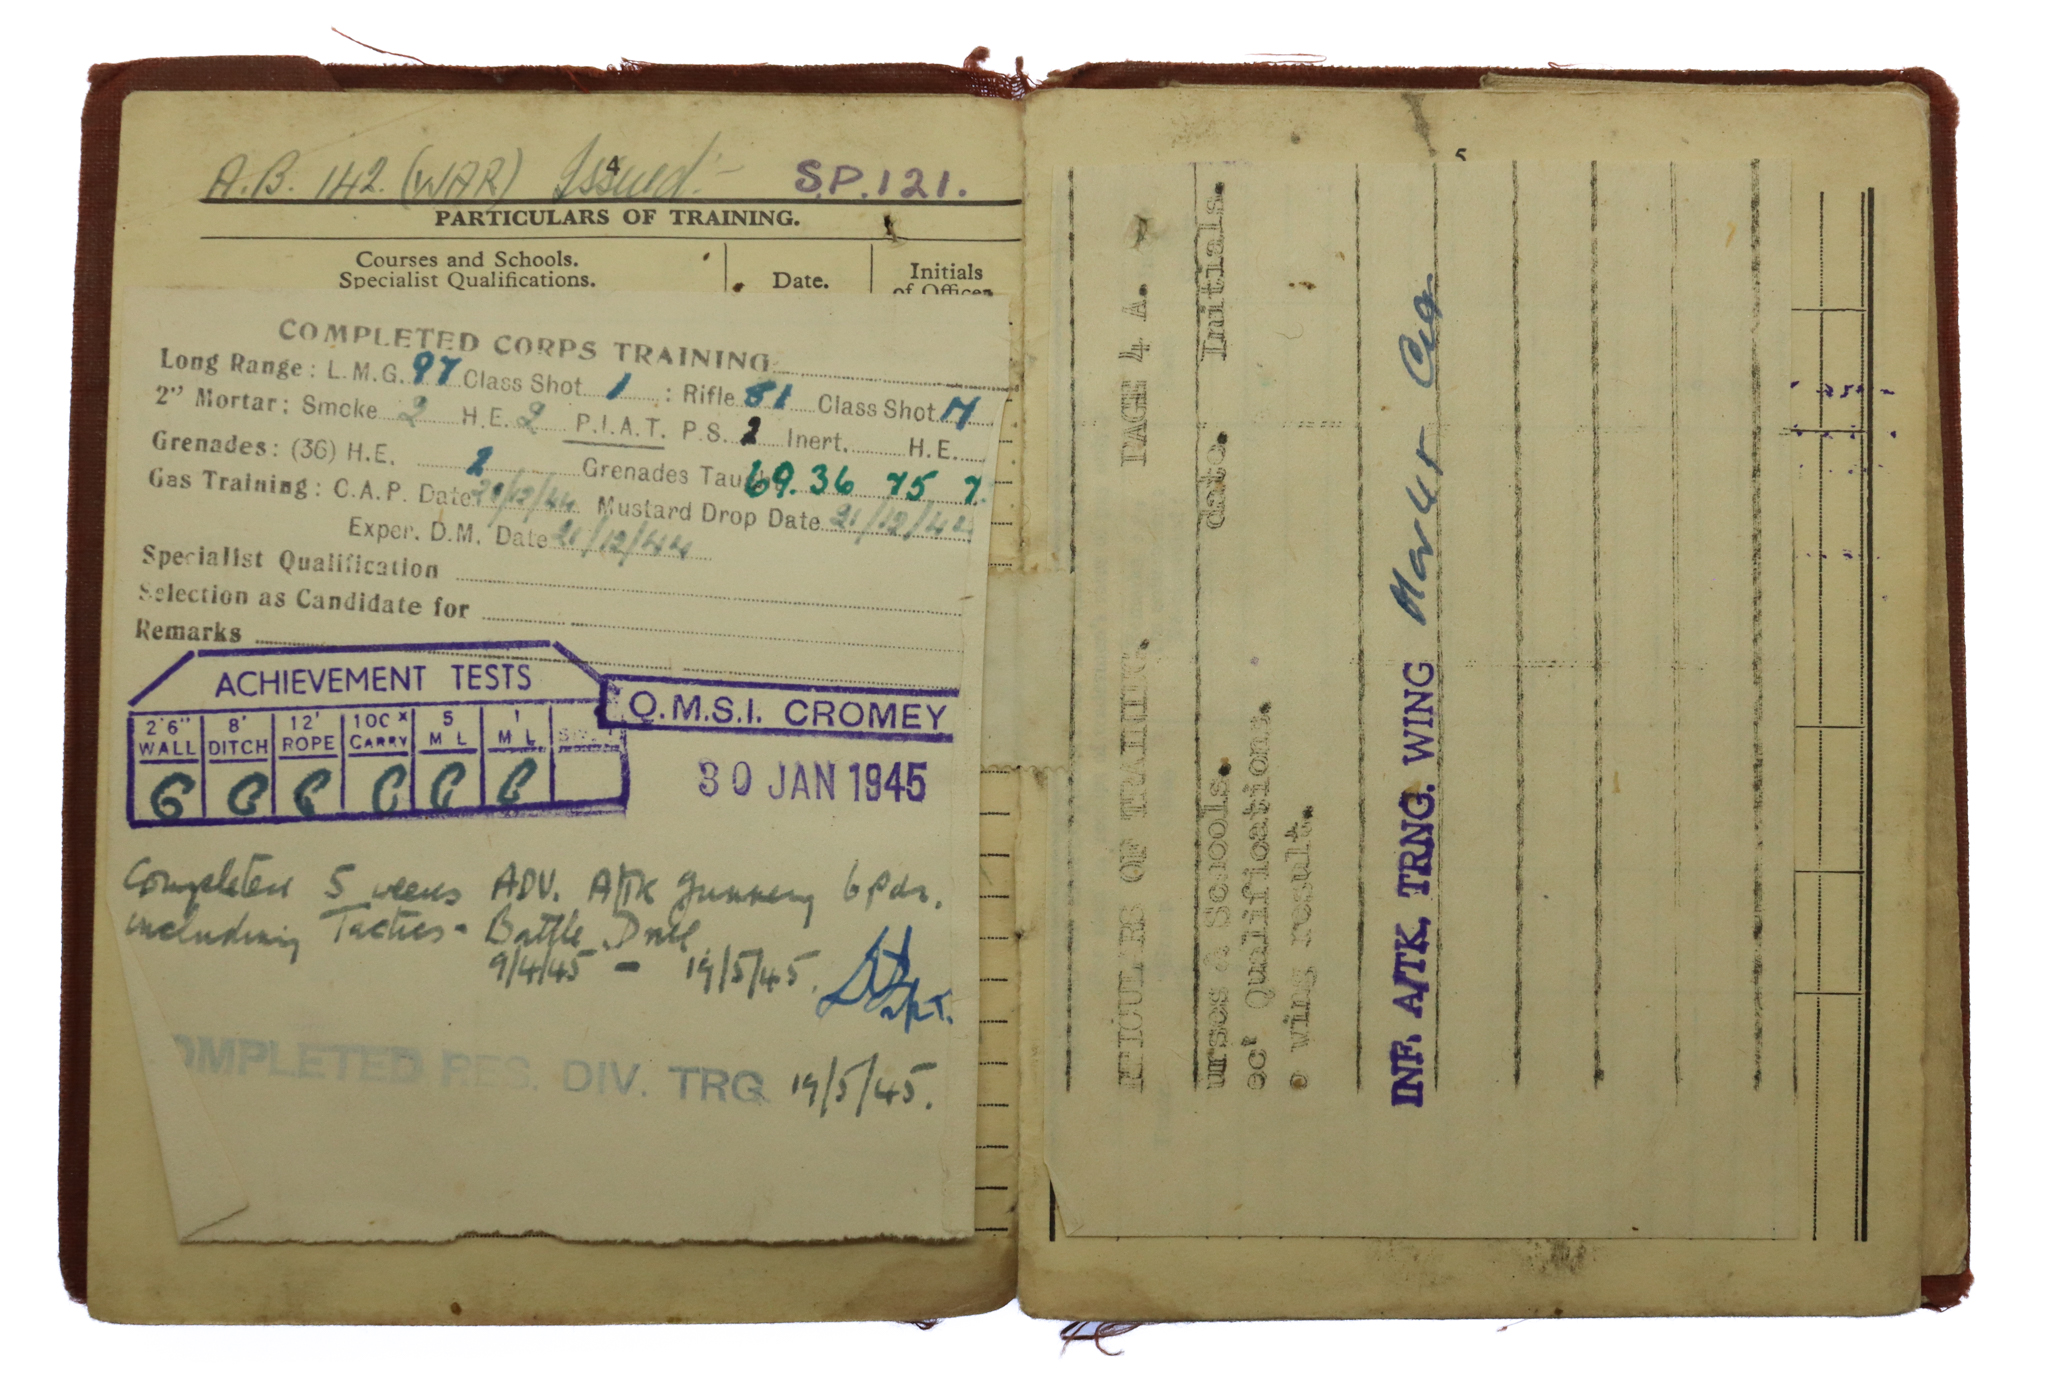 4
A.B. 142. (WAR) Issued:- S.P.121.
PARTICULARS OF TRAINING.
Courses and Schools.
Specialist Qualifications.
Date.
Initials
of Officer
COMPLETED CORPS TRAINING
Long Range: L.M.G. 97 Class Shot 1 : Rifle 51 Class Shot M
2" Mortar: Smoke 2 H.E. 2 P.I.A.T. P.S. 2 Inert. H.E.
Grenades: (36) H.E. 2 Grenades Tau 69. 36 75 7
Gas Training: C.A.P. Date 21/12/44 Mustard Drop Date 21/12/44
Exper. D.M. Date 21/12/44
Specialist Qualification
Selection as Candidate for
Remarks
ACHIEVEMENT TESTS
2'6" WALL 8' DITCH 12' ROPE 100x CARRY 5 M L 1 M L
G G G G G G
Q.M.S.I. CROMEY
30 JAN 1945
Completed 5 weeks ADV. A/TK gunnery 6 Pdr.
including Tactics - Battle Drill
9/4/45 - 19/5/45. Capt.
OMPLETED RES. DIV. TRG 19/5/45.
5
RTICULARS OF TRAINING. PAGE 4 A.
urses & Schools. date. Initials.
ec' Qualifications.
wing result.
INF. A/TK. TRNG. WING